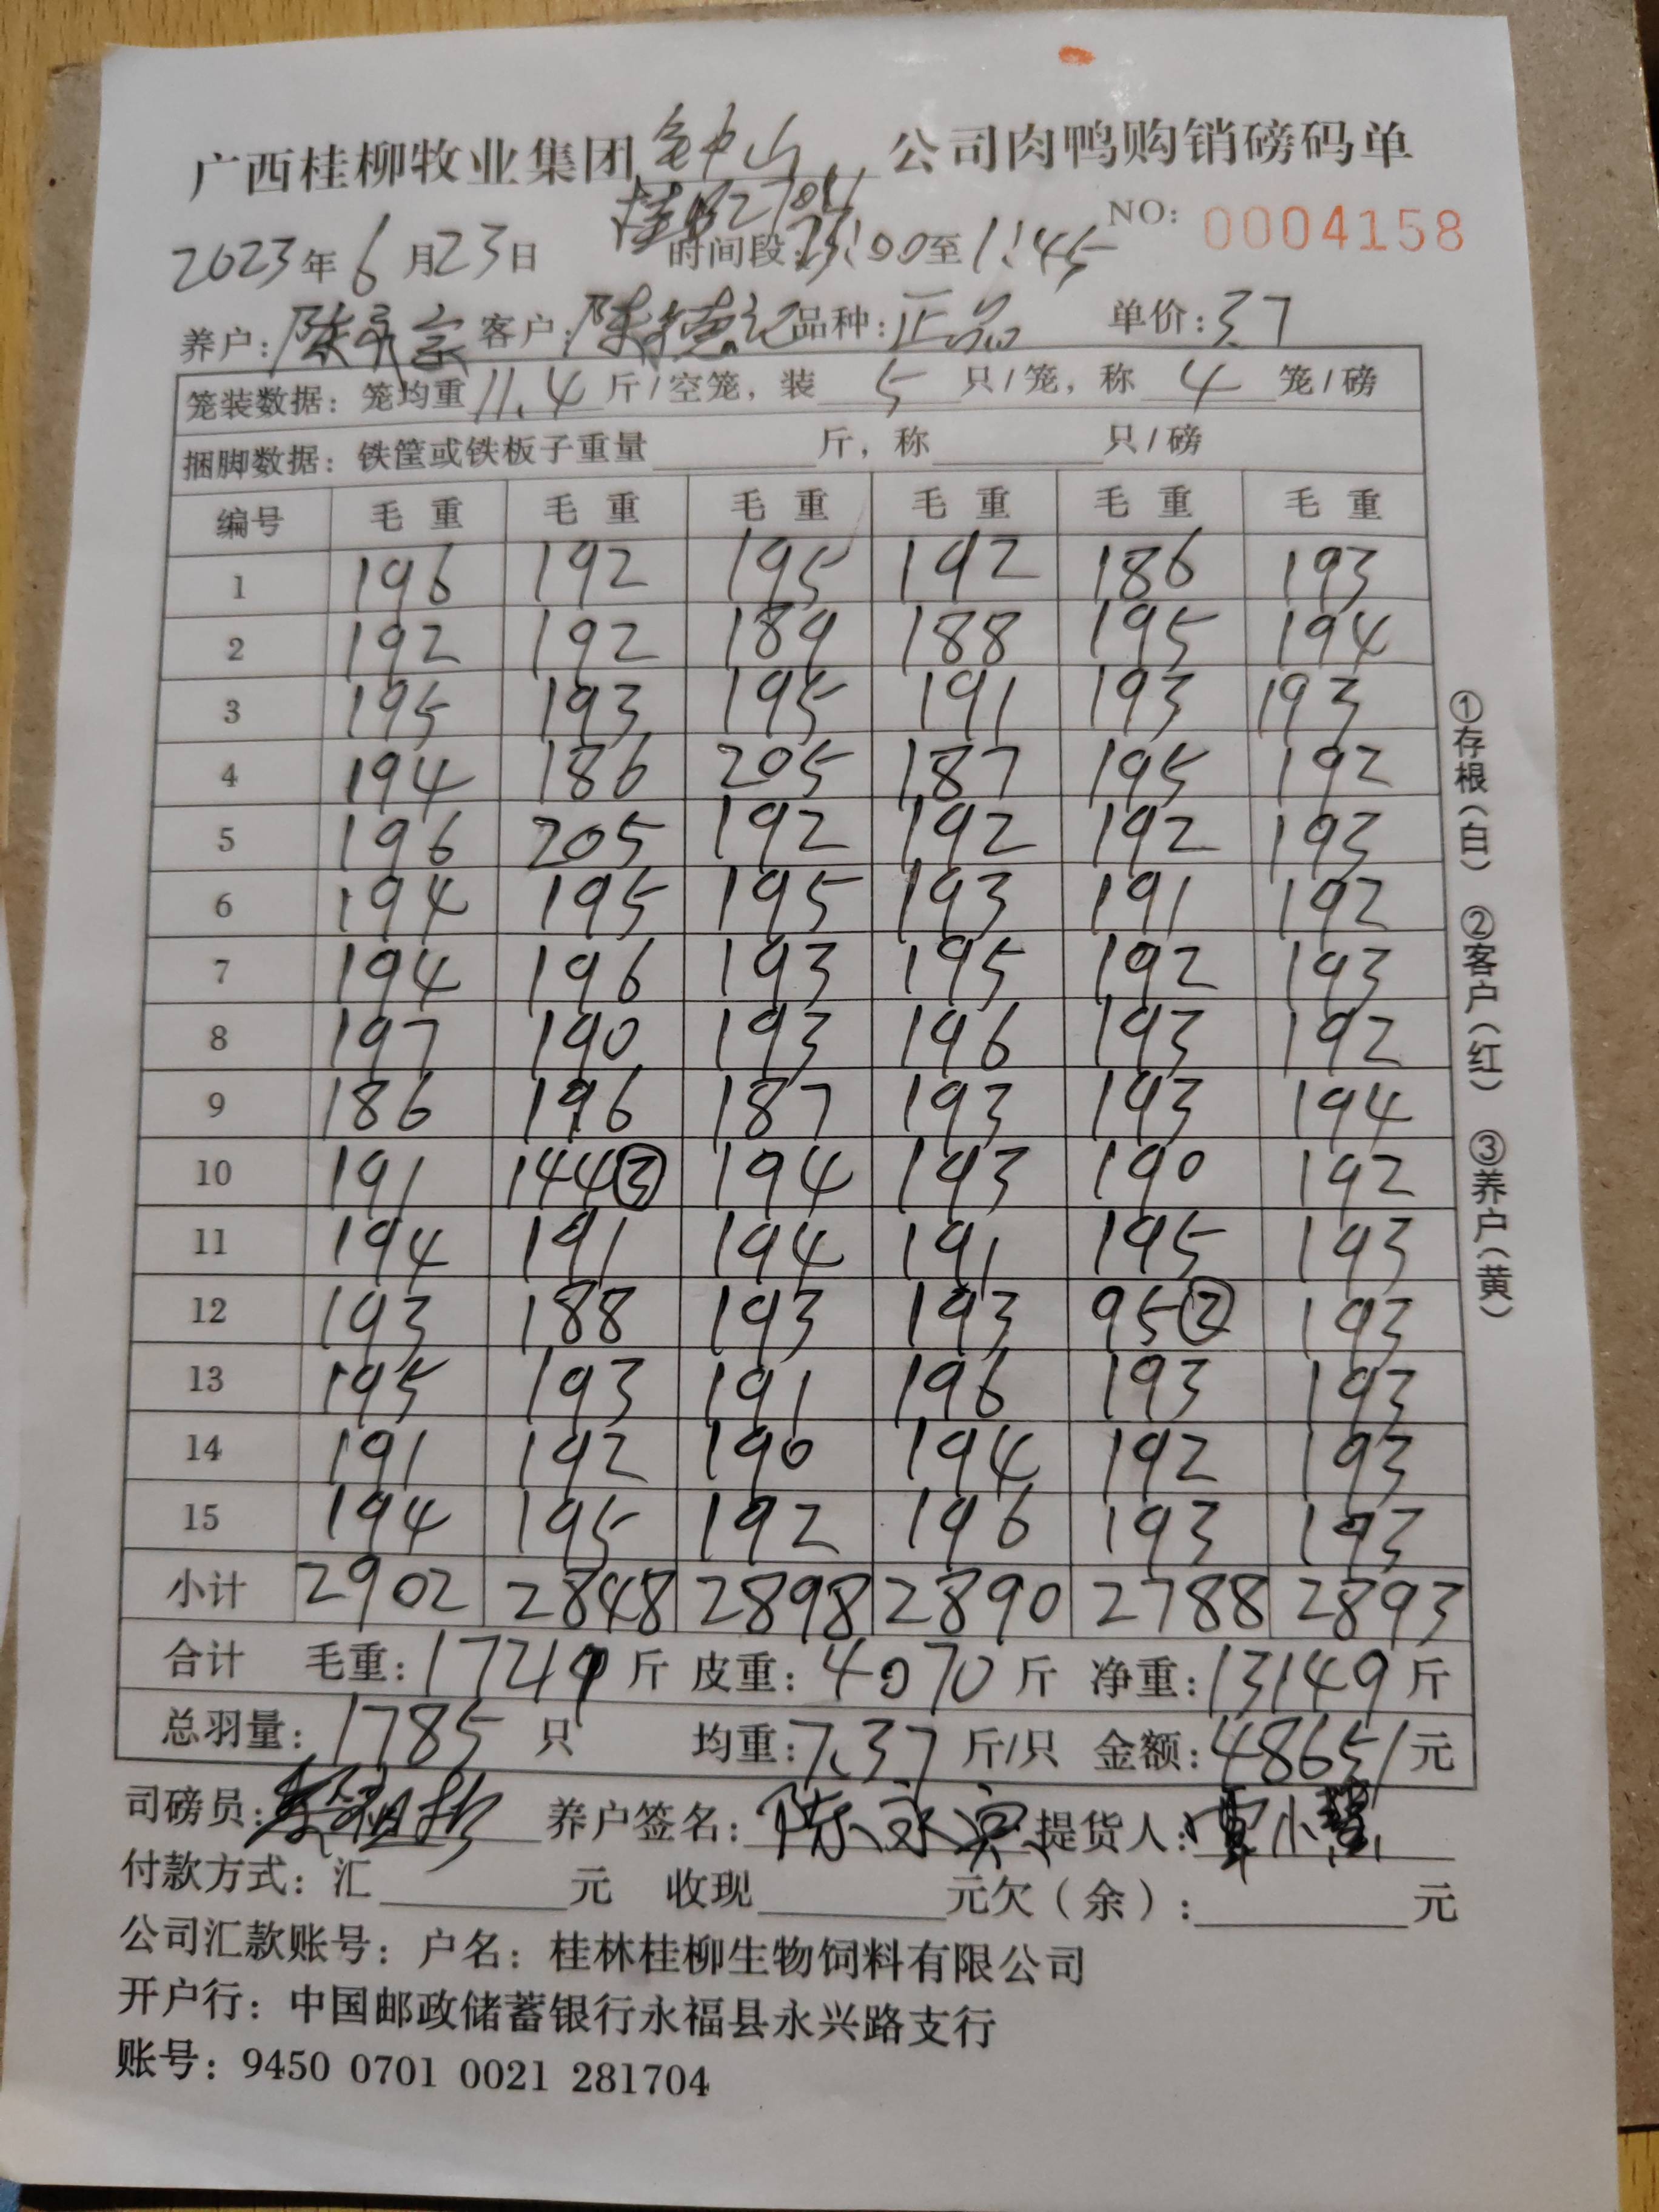 广西桂柳牧业集团钟山公司肉鸭购销磅码单
NO: 0004158
2023年6月23日 时间段:23:00至1:45
养户:陈永宾 客户:陈德记 品种:正品 单价:3.7
笼装数据: 笼均重11.4斤/空笼, 装5只/笼, 称4笼/磅
捆脚数据: 铁筐或铁板子重量 斤, 称 只/磅
编号 毛重 毛重 毛重 毛重 毛重 毛重
1 196 192 195 192 186 193
2 192 192 189 188 195 194
3 195 193 195 191 193 193
4 194 186 205 187 195 192
5 196 205 192 192 192 193
6 194 195 195 193 191 192
7 194 196 193 195 192 193
8 197 190 193 196 193 192
9 186 196 187 193 193 194
10 191 144③ 194 193 190 192
11 194 191 194 191 195 193
12 193 188 193 193 95② 193
13 195 193 191 196 193 193
14 191 192 190 194 192 193
15 194 195 192 196 193 193
小计 2902 2848 2898 2890 2788 2893
合计 毛重:17219斤 皮重:4070斤 净重:13149斤
总羽量:1785只 均重:7.37斤/只 金额:48651元
司磅员: 养户签名:陈永宾 提货人:覃小
付款方式: 汇 元 收现 元欠(余): 元
公司汇款账号: 户名: 桂林桂柳生物饲料有限公司
开户行: 中国邮政储蓄银行永福县永兴路支行
账号: 9450 0701 0021 281704
①存根(白) ②客户(红) ③养户(黄)